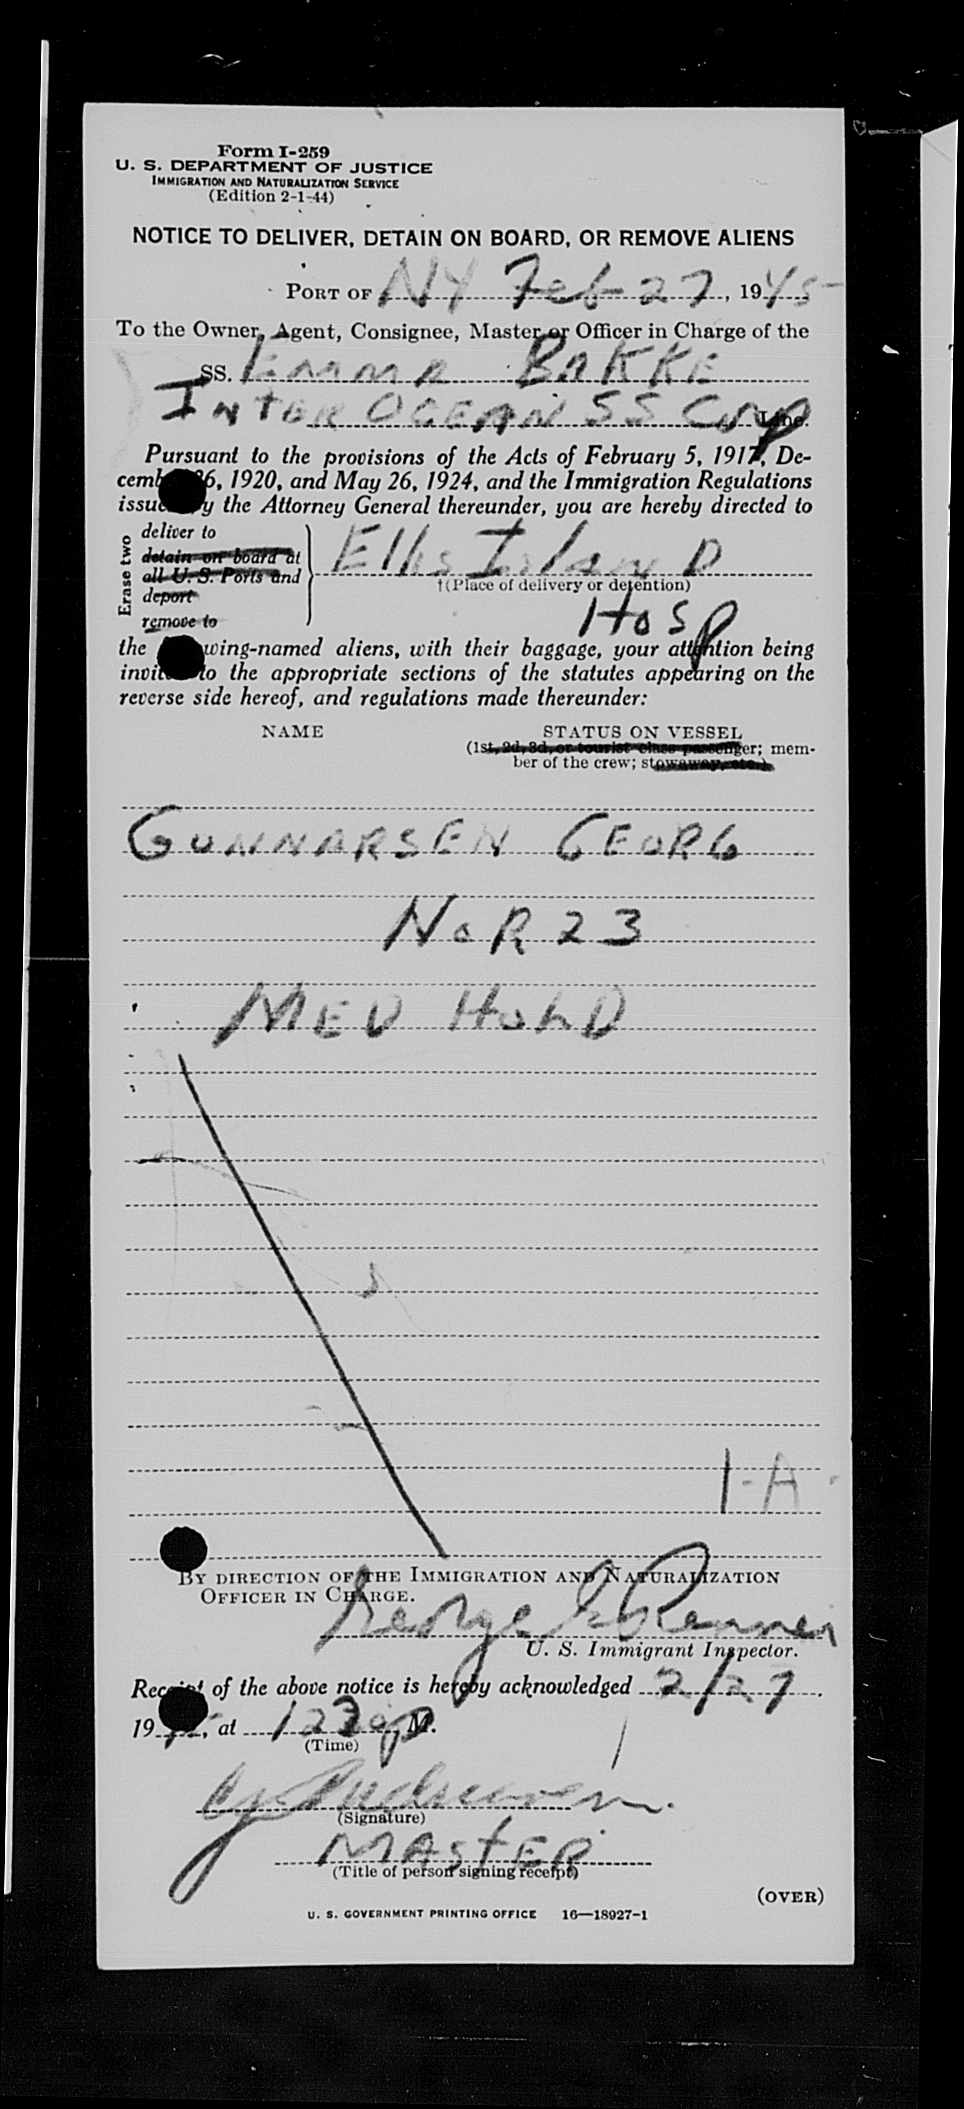 Form I-259
U. S. DEPARTMENT OF JUSTICE
IMMIGRATION AND NATURALIZATION SERVICE
(Edition 2-1-44)
NOTICE TO DELIVER, DETAIN ON BOARD, OR REMOVE ALIENS
PORT OF NY Feb 27, 1945
To the Owner, Agent, Consignee, Master or Officer in Charge of the
SS. EMMA BAKKE
INTER OCEAN SS Corp Line.
Pursuant to the provisions of the Acts of February 5, 1917, De-
cember 26, 1920, and May 26, 1924, and the Immigration Regulations
issued by the Attorney General thereunder, you are hereby directed to
Erase two
deliver to
detain on board at
all U. S. Ports and
deport
remove to
Ellis Island
†(Place of delivery or detention)
Hosp
the following-named aliens, with their baggage, your attention being
invited to the appropriate sections of the statutes appearing on the
reverse side hereof, and regulations made thereunder:
NAME STATUS ON VESSEL
(1st, 2d, 3d, or tourist class passenger; mem-
ber of the crew; stowaway, etc.)
GUNNARSEN GEORG
NOR 23
MED HOLD
1-A
BY DIRECTION OF THE IMMIGRATION AND NATURALIZATION
OFFICER IN CHARGE.
George Renner
U. S. Immigrant Inspector.
Receipt of the above notice is hereby acknowledged 2/27,
1945, at 1230 p M.
(Time)
(Signature)
MASTER
(Title of person signing receipt)
(OVER)
U. S. GOVERNMENT PRINTING OFFICE 16—18927-1